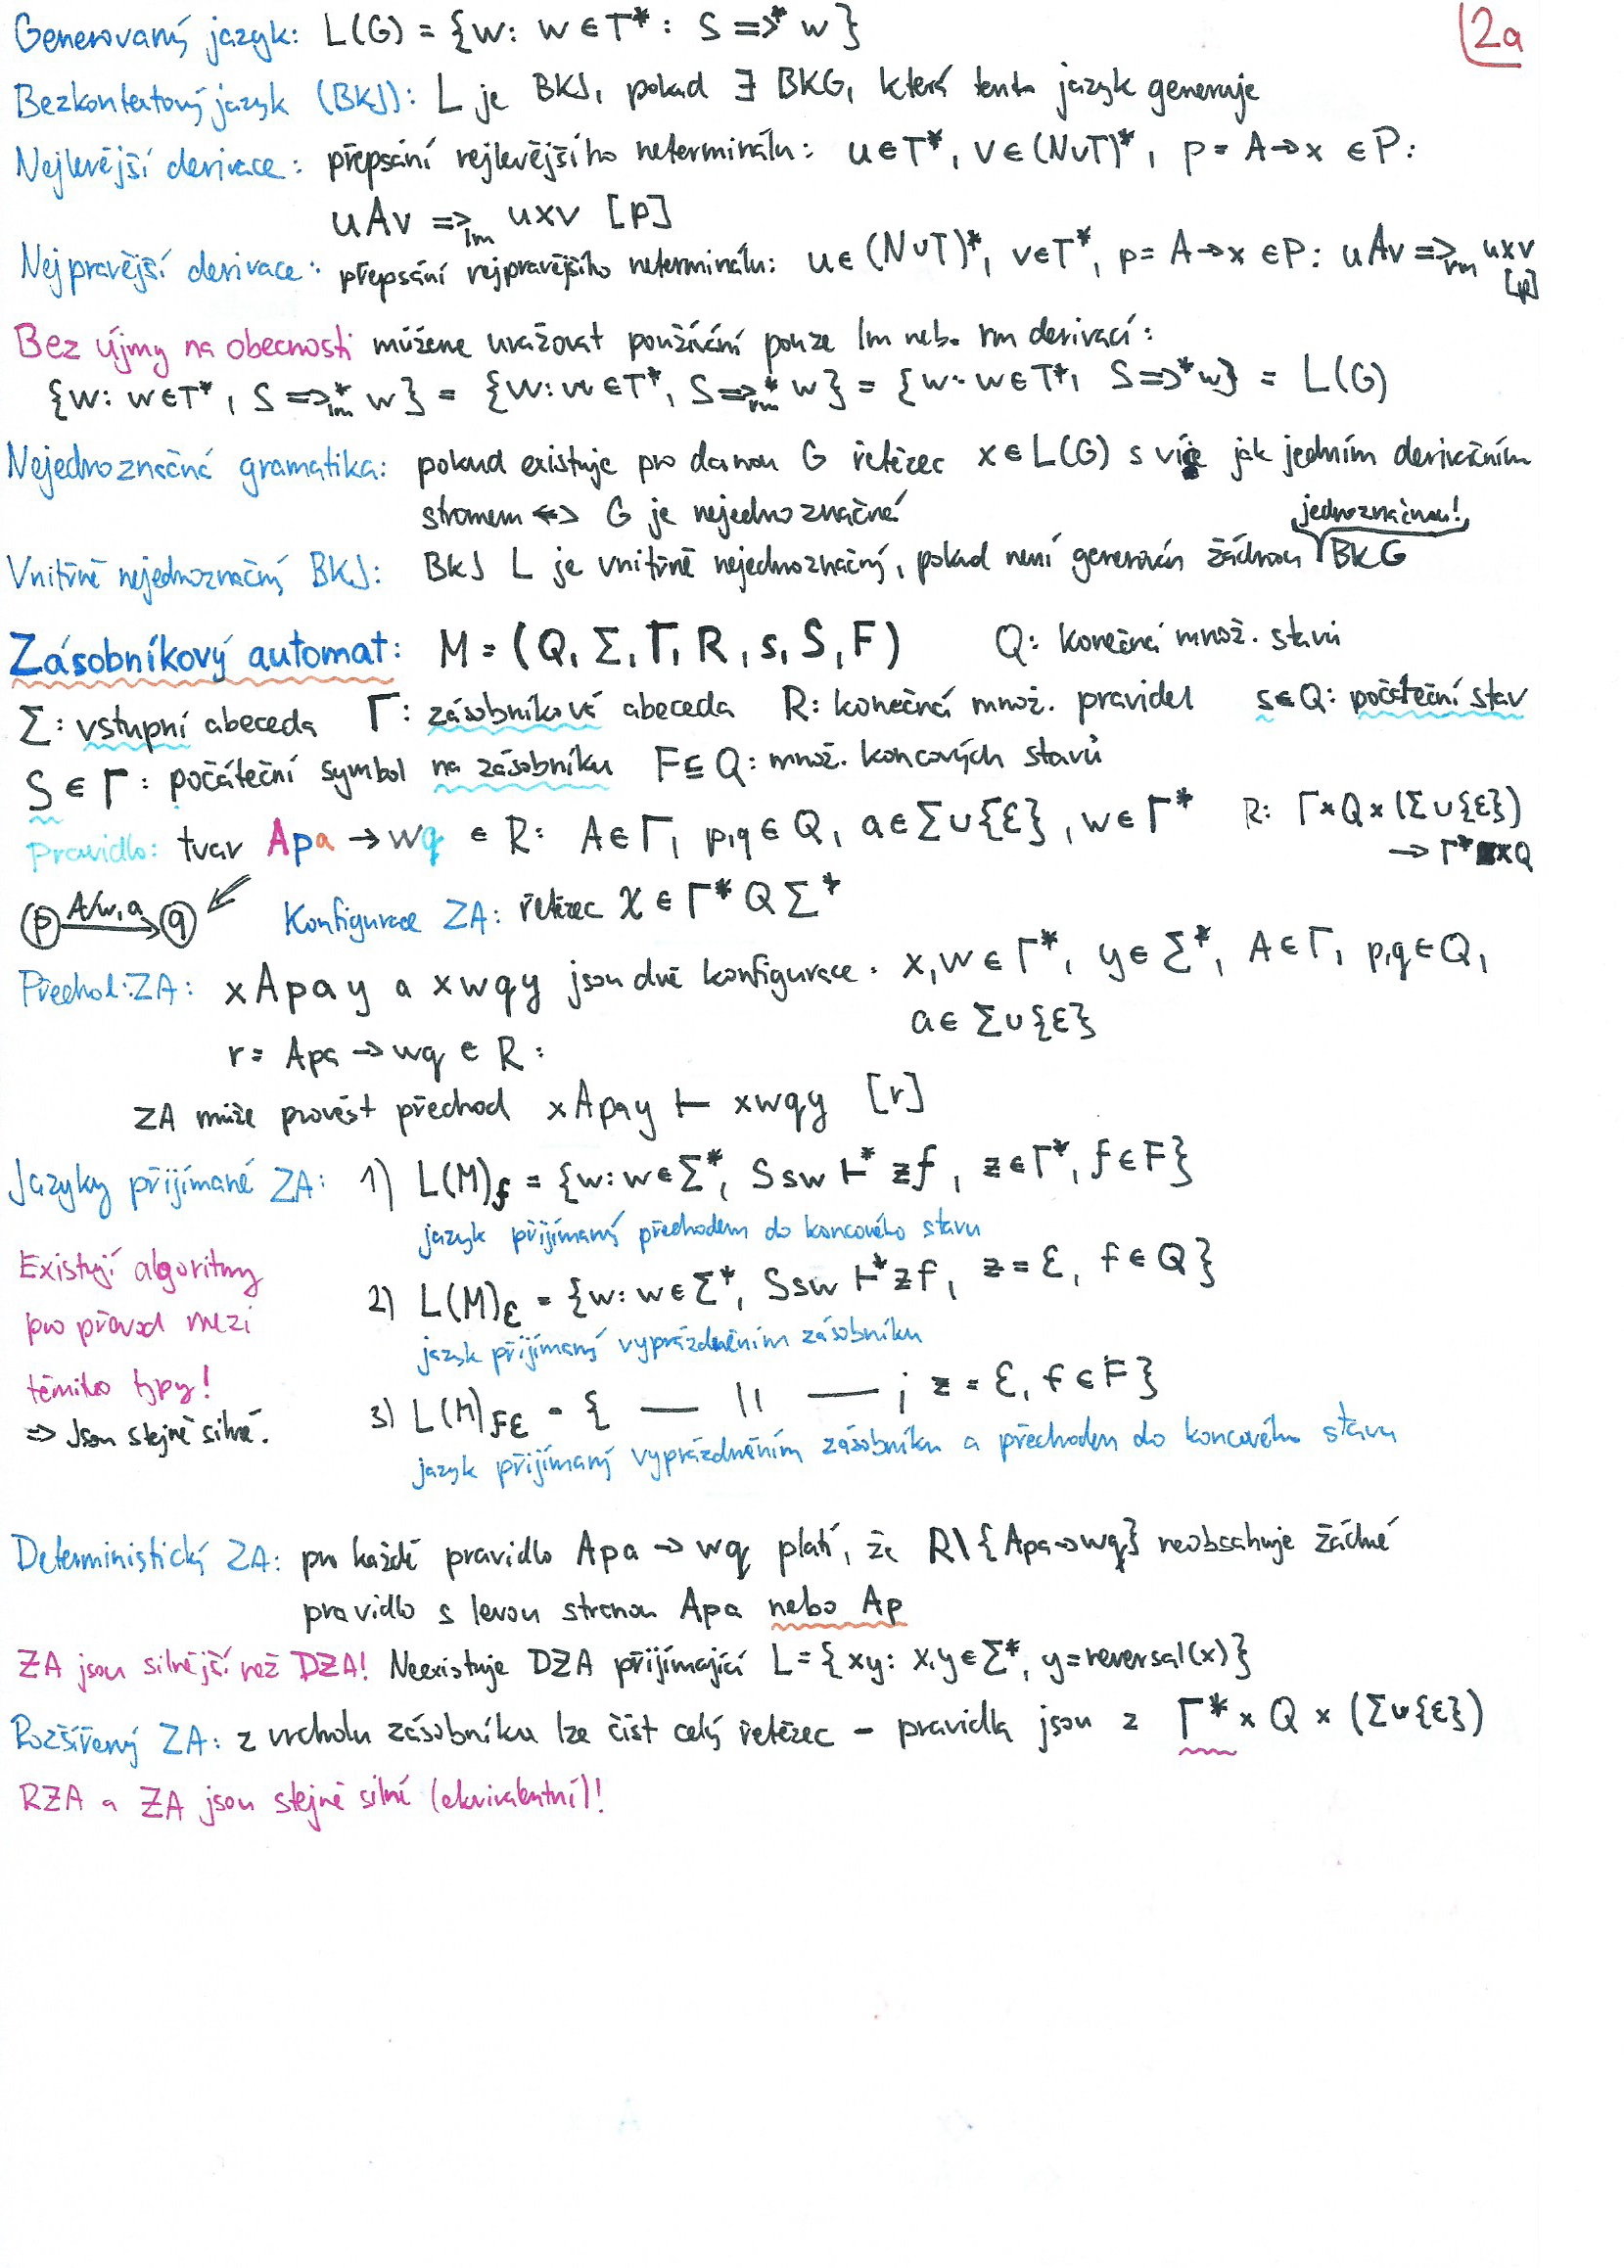 2a
Generovaný jazyk: L(G) = {w: w ∈ T* : S ⇒* w}
Bezkontextový jazyk (BKJ): L je BKJ, pokud ∃ BKG, která tento jazyk generuje
Nejlevější derivace: přepsání nejlevějšího neterminálu: u∈T*, v∈(N∪T)*, p = A→x ∈ P:
uAv ⇒lm uxv [p]
Nejpravější derivace: přepsání nejpravějšího neterminálu: u∈(N∪T)*, v∈T*, p = A→x ∈P: uAv ⇒rm uxv
[p]
Bez újmy na obecnosti můžeme uvažovat používání pouze lm nebo rm derivací:
{w: w∈T*, S ⇒lm* w} = {w: w∈T*, S ⇒rm* w} = {w: w∈T*, S ⇒* w} = L(G)
Nejednoznačná gramatika: pokud existuje pro danou G řetězec x ∈ L(G) s více jak jedním derivačním
stromem <-> G je nejednoznačná
jednoznačnou!
Vnitřně nejednoznačný BKJ: BKJ L je vnitřně nejednoznačný, pokud není generován žádnou BKG
Zásobníkový automat: M = (Q, Σ, Γ, R, s, S, F) Q: konečná množ. stavů
Σ: vstupní abeceda Γ: zásobníková abeceda R: konečná množ. pravidel s∈Q: počáteční stav
S ∈ Γ: počáteční symbol na zásobníku F⊆Q: množ. koncových stavů
Pravidlo: tvar Apa → wq ∈ R: A∈Γ, p,q ∈ Q, a∈Σ∪{ε}, w∈Γ* R: Γ×Q×(Σ∪{ε})
→ Γ*×Q
p A/w,a q Konfigurace ZA: řetězec χ ∈ Γ* Q Σ*
Přechod ZA: xApay a xwqy jsou dvě konfigurace. x,w ∈ Γ*, y∈ Σ*, A∈Γ, p,q∈Q,
a∈ Σ∪{ε}
r = Apa → wq ∈ R:
ZA může provést přechod xApay ⊢ xwqy [r]
Jazyky přijímané ZA: 1) L(M)f = {w: w∈Σ*, Ssw ⊢* zf, z∈Γ*, f∈F}
jazyk přijímaný přechodem do koncového stavu
Existují algoritmy
2) L(M)ε = {w: w∈Σ*, Ssw ⊢* zf, z=ε, f∈Q}
pro převod mezi
jazyk přijímaný vyprázdněním zásobníku
těmito typy!
3) L(M)Fε = { — || — ; z = ε, f∈F}
⇒ Jsou stejně silné.
jazyk přijímaný vyprázdněním zásobníku a přechodem do koncového stavu
Deterministický ZA: pro každé pravidlo Apa → wq platí, že R\{Apa→wq} neobsahuje žádné
pravidlo s levou stranou Apa nebo Ap
ZA jsou silnější než DZA! Neexistuje DZA přijímající L={xy: x,y∈Σ*, y=reversal(x)}
Rozšířený ZA: z vrcholu zásobníku lze číst celý řetězec – pravidla jsou z Γ* × Q × (Σ∪{ε})
RZA a ZA jsou stejně silní (ekvivalentní)!